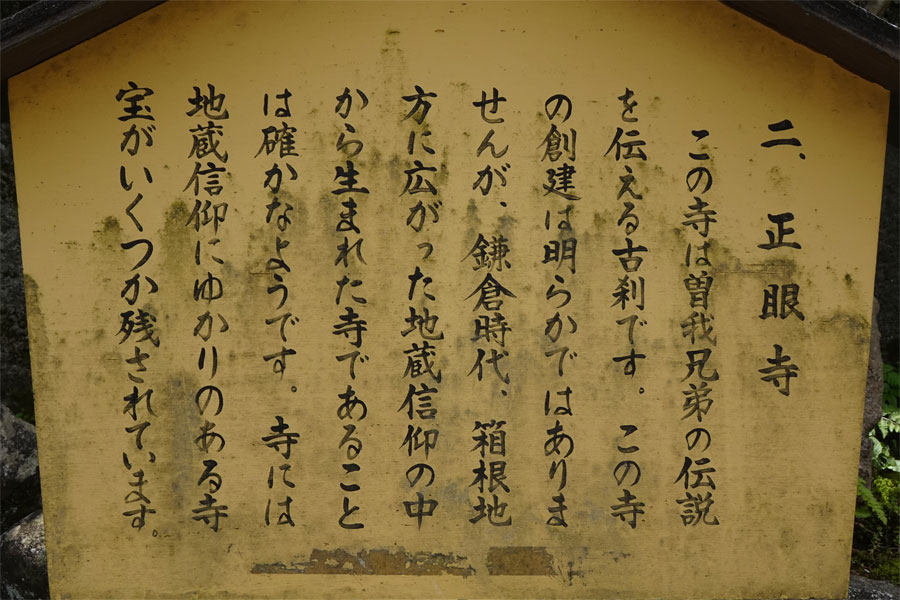 二、正眼寺
この寺は曽我兄弟の伝説
を伝える古刹です。この寺
の創建は明らかではありま
せんが、鎌倉時代、箱根地
方に広がった地蔵信仰の中
から生まれた寺であること
は確かなようです。寺には
地蔵信仰にゆかりのある寺
宝がいくつか残されています。